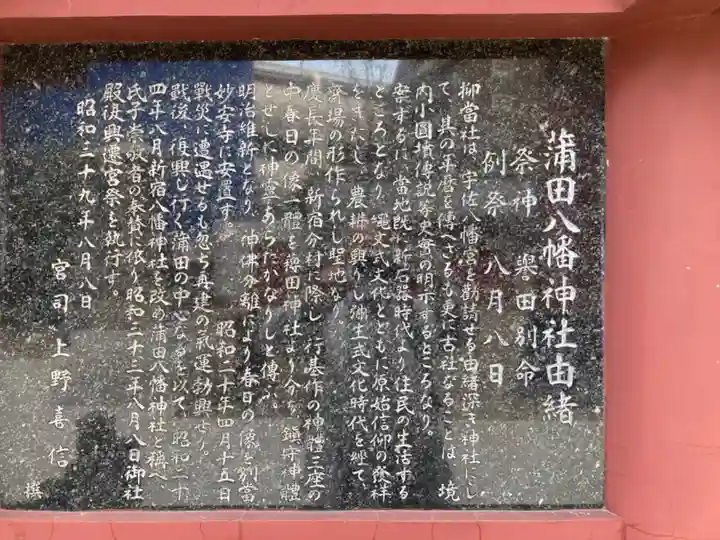 蒲田八幡神社由緒
祭神 譽田別命
例祭 八月八日
抑當社は、宇佐八幡宮を勸請せる由緒深き神社にし
て、其の年暦を傳へざるも更に古社なることは、境
内小圓墳傳説等史實の明示するところなり。
案ずるに、當地既に新石器時代より住民の生活する
ところとなり、繩文式文化とともに原始信仰の發祥
をきたし、農耕の興りし彌生式文化時代を經て
齋場の形作られし聖地なり。
慶長年間、新宿分村に際し、行基作の神體三座の
中春日の像一體を薭田神社より分ち鎭守神體
とせしに神靈あらたかなりしと傳ふ。
明治維新となり、神佛分離により春日の像を別當
妙安寺に安置す。 昭和二十年四月十五日
戰災に遭遇せるも忽ち再建の氣運勃興せり。
戰後、復興し行く蒲田の中心なるを以て、昭和二十
四年八月新宿八幡神社を改め蒲田八幡神社と稱へ
氏子崇敬者の奉賛に依り昭和三十三年八月八日御社
殿復興遷宮祭を執行す。
昭和三十九年八月八日
宮司 上野喜信 撰